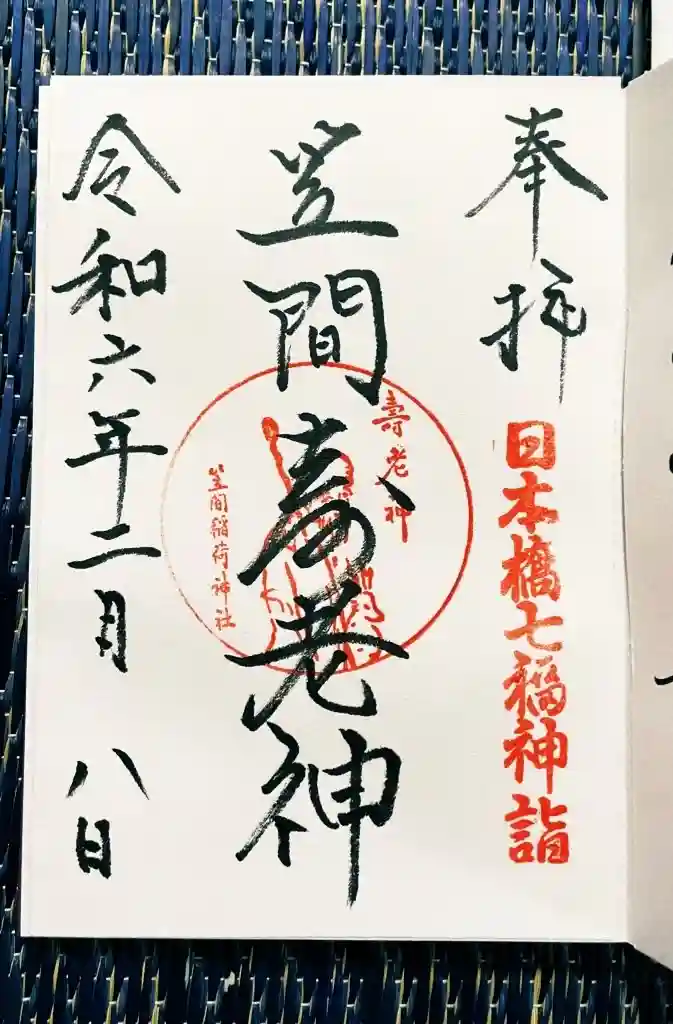 奉拝
日本橋七福神詣
笠間壽老神
壽老神
笠間稲荷神社
令和六年二月八日